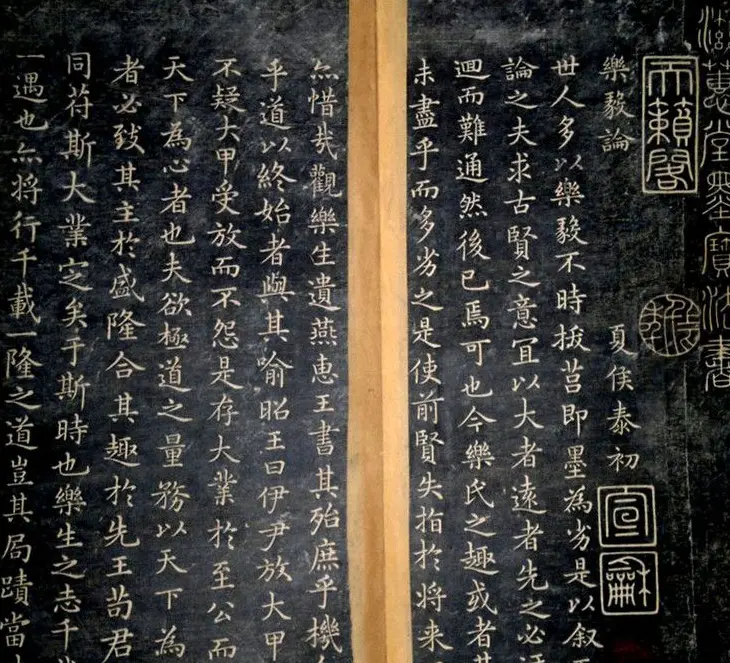 蕙堂墨寶法書
天籟閣
樂毅論 夏侯泰初
宣龢
世人多以樂毅不時拔莒即墨為劣是以叙
論之夫求古賢之意冝以大者遠者先之必
迴而難通然後已焉可也今樂氏之趣或者其
未盡乎而多劣之是使前賢失指於将来
亦惜哉觀樂生遺燕惠王書其殆庶乎機
乎道以終始者與其喻昭王曰伊尹放大甲
不疑大甲受放而不怨是存大業於至公而
天下為心者也夫欲極道之量務以天下為
者必致其主於盛隆合其趣於先王苟君
同苻斯大業定矣于斯時也樂生之志千
一遇也亦将行千載一隆之道豈其局蹟當